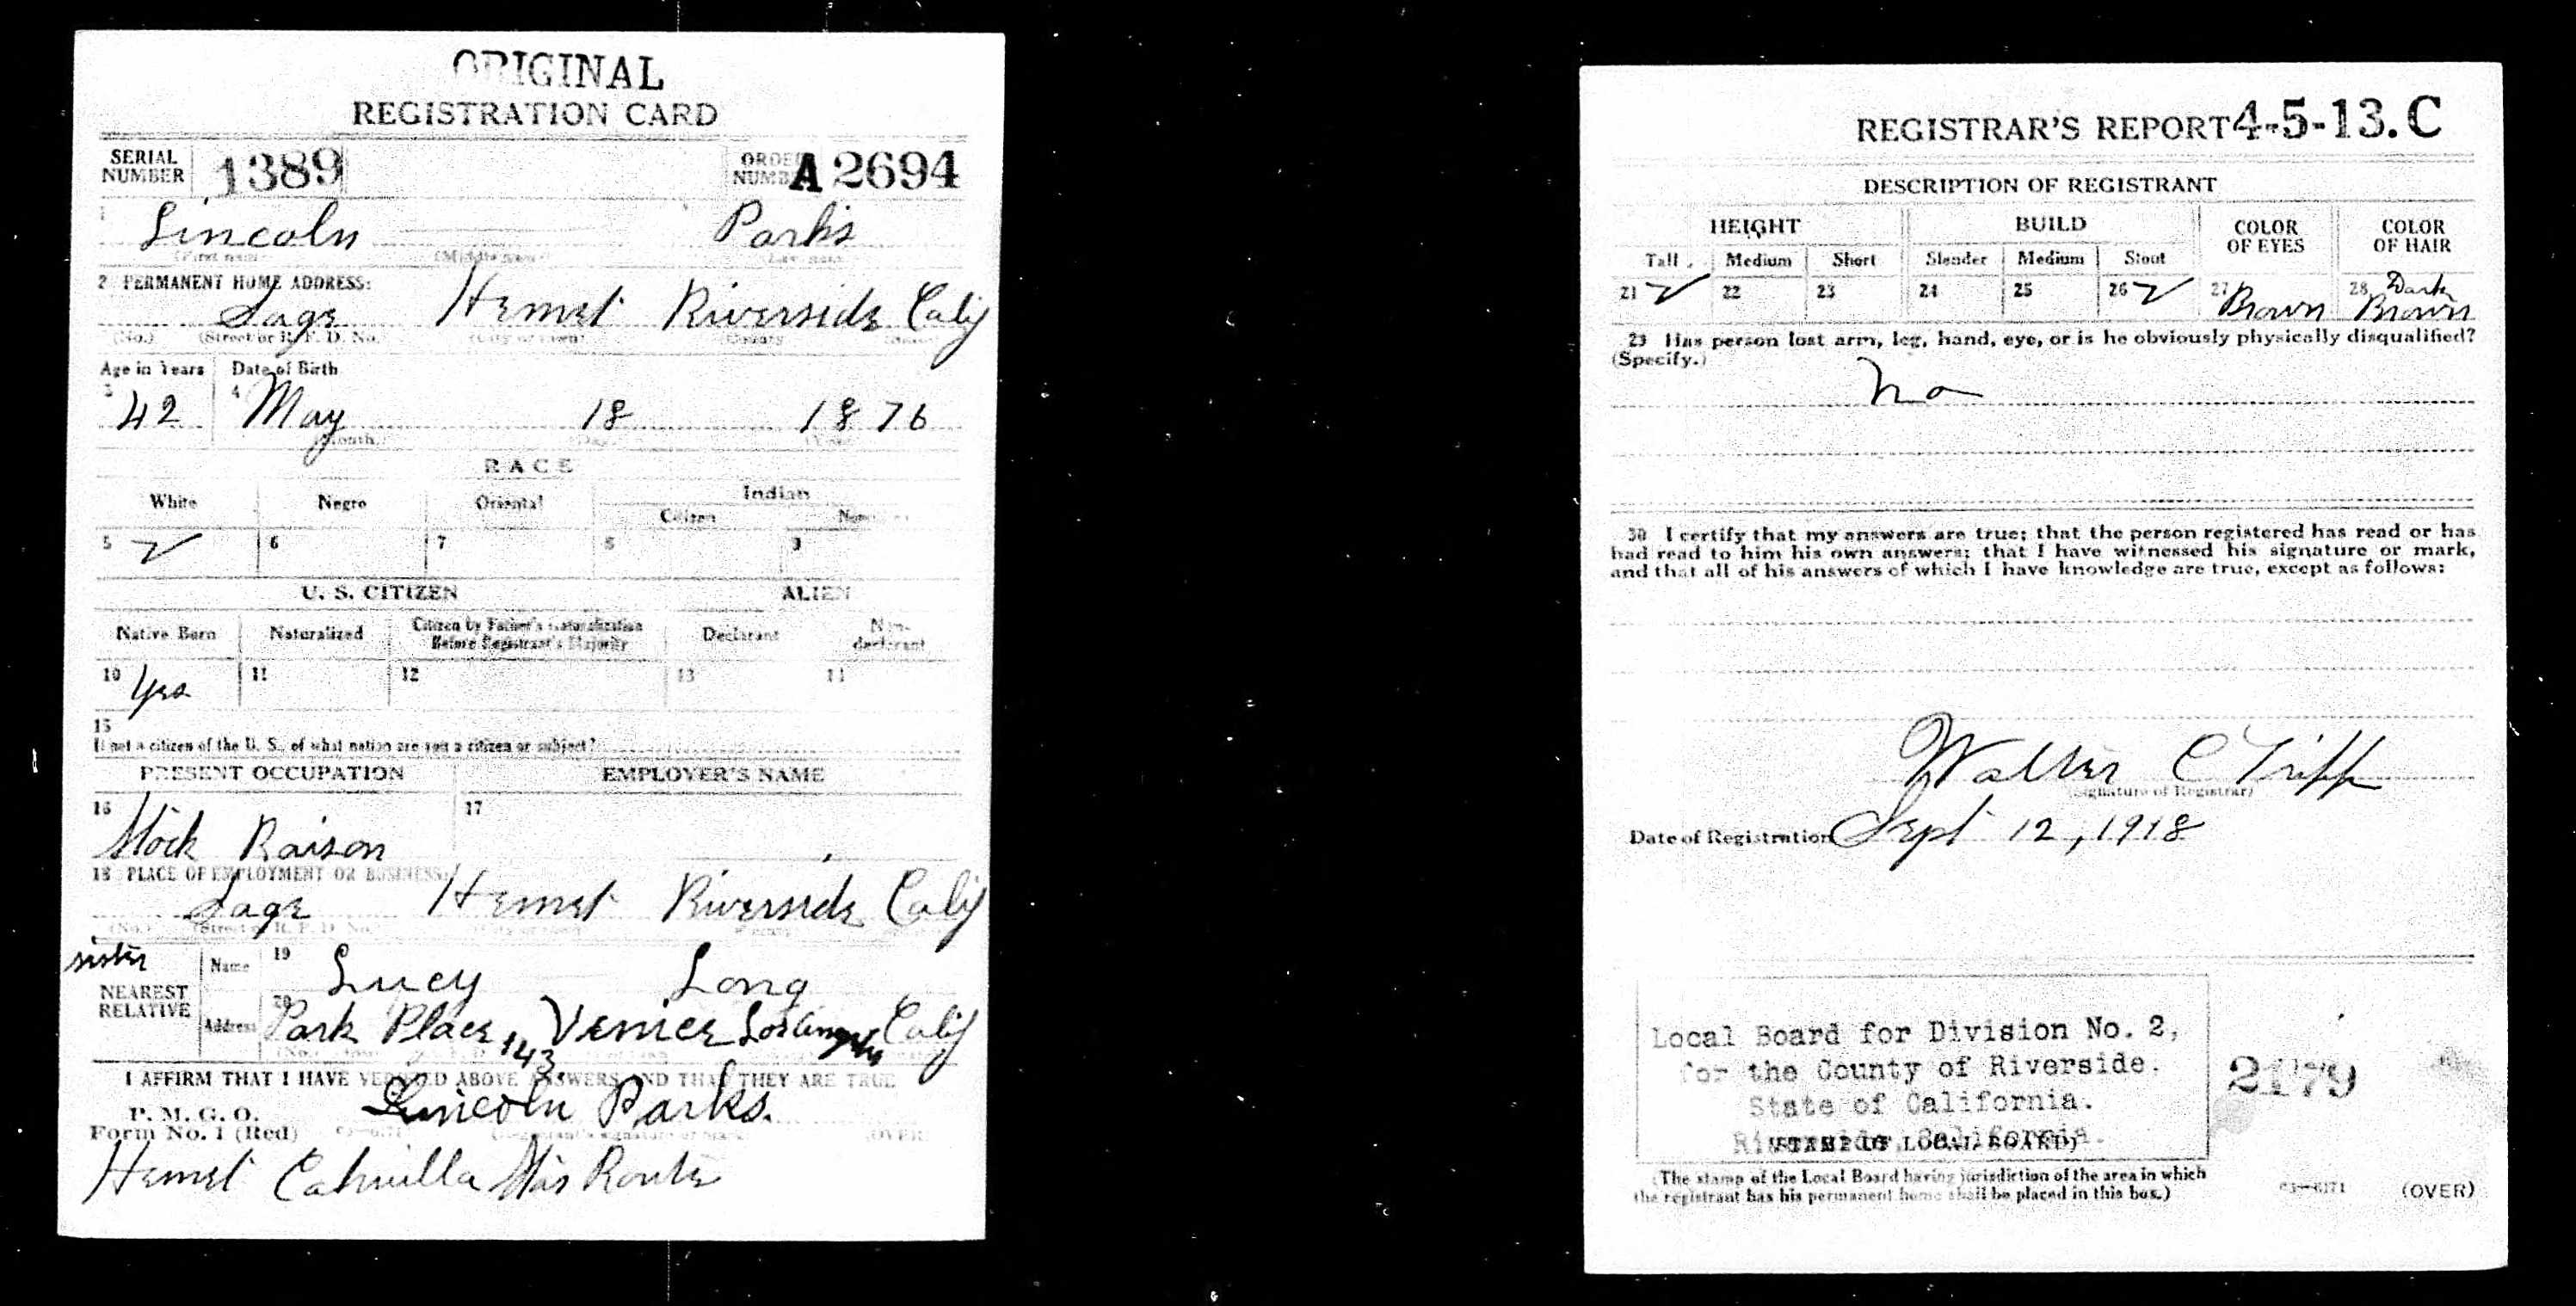 ORIGINAL
REGISTRATION CARD
SERIAL NUMBER 1389 ORDER NUMBER A 2694
1 Lincoln Parks
(First name) (Middle name) (Last name)
2 PERMANENT HOME ADDRESS:
Sage Hemet Riverside Calif
(No.) (Street or R. F. D. No.) (City or town) (County) (State)
Age in Years Date of Birth
3 42 4 May 18 1876
(Month.) (Day.) (Year.)
RACE
White Negro Oriental Indian
Citizen
5 ✓ 6 7 8 9
U. S. CITIZEN ALIEN
Native Born Naturalized Citizen by Father's Naturalization Before Registrant's Majority Declarant Non-declarant
10 Yes 11 12 13 14
15
If not a citizen of the U. S., of what nation are you a citizen or subject?
PRESENT OCCUPATION EMPLOYER'S NAME
16 Stock Raison 17
18 PLACE OF EMPLOYMENT OR BUSINESS:
Sage Hemet Riverside Calif
(No.) (Street or R. F. D. No.)
sister
NEAREST RELATIVE Name 19 Lucy Long
Address 20 Park Place 143 Venice Los Angeles Calif
I AFFIRM THAT I HAVE VERIFIED ABOVE ANSWERS AND THAT THEY ARE TRUE
P. M. G. O.
Form No. 1 (Red) Lincoln Parks.
(Registrant's signature or mark) (OVER)
Hemet Cahuilla Star Route
REGISTRAR'S REPORT 4-5-13. C
DESCRIPTION OF REGISTRANT
HEIGHT BUILD COLOR OF EYES COLOR OF HAIR
Tall Medium Short Slender Medium Stout
21 ✓ 22 23 24 25 26 ✓ 27 Brown 28 Dark Brown
29 Has person lost arm, leg, hand, eye, or is he obviously physically disqualified?
(Specify.)
No
30 I certify that my answers are true; that the person registered has read or has
had read to him his own answers; that I have witnessed his signature or mark,
and that all of his answers of which I have knowledge are true, except as follows:
Walter C Tripp
(Signature of Registrar)
Date of Registration Sept 12, 1918
Local Board for Division No. 2,
for the County of Riverside.
State of California.
Riverside, California.
(STAMP OF LOCAL BOARD)
2179
(The stamp of the Local Board having jurisdiction of the area in which
the registrant has his permanent home shall be placed in this box.)
03—6171 (OVER)